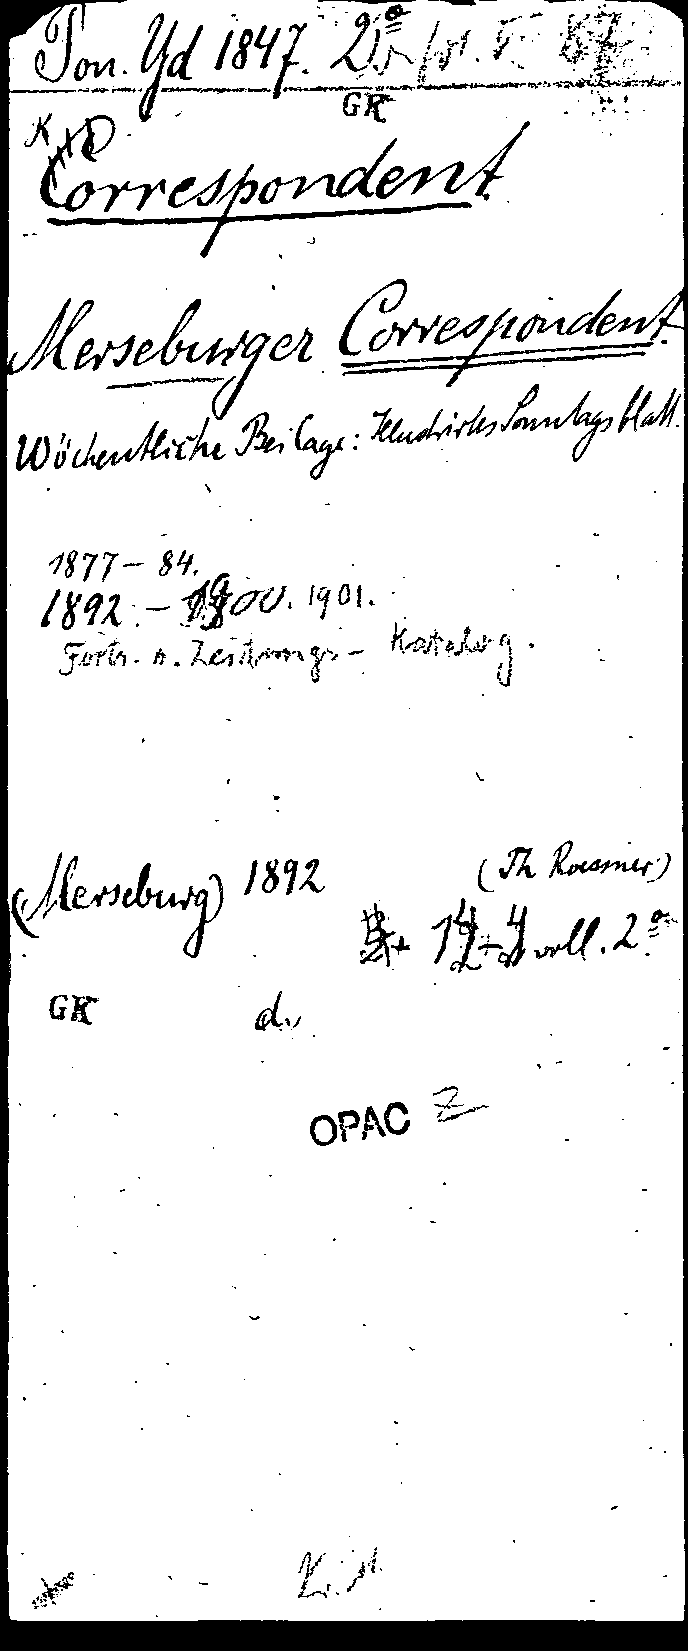 Pon. Yd 1847. 2º
GK
K
Correspondent
Merseburger Correspondent.
Wöchentliche Beilage: Illustrirtes Sonntagsblatt.
1877 – 84.
1892. – 1901.
Forts. s. Zeitungs – Katalog.
(Merseburg) 1892 (Th Roessner)
voll. 2º
GK d.
OPAC Z